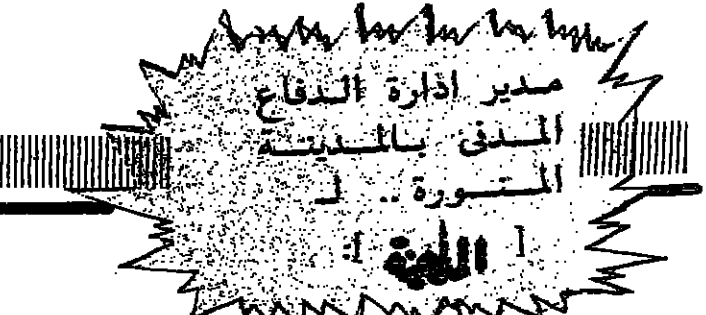 مدير ادارة الدفاع
المدنى بالمدينة
المنورة .. لـ
[ المدينة ]: